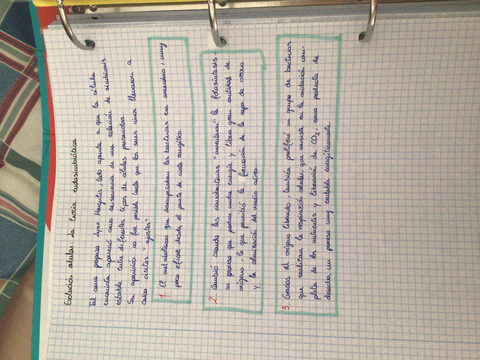 Evolución celular: la teoría endosimbiótica
Tal como propuso Lynn Margulis, todo apunta a que la célula
eucariota apareció como consecuencia de una relación de simbiosis
estable entre diferentes tipos de células procariotas.
Su aparición no fue posible hasta que los seres vivos llevaron a
cabo ciertos "ajustes"
1. El metabolismo que desempeñaban las bacterias era anaerobio, muy
poco eficaz desde el punto de vista energético.
2. Cambió cuando las cianobacterias "inventaron" la fotosíntesis,
un proceso que produce mucha energía y libera gran cantidad de
oxígeno, lo que permitió la formación de la capa de ozono
y la colonización del medio aéreo.
3. Gracias al oxígeno liberado, también proliferó un grupo de bacterias
que realizaban la respiración celular, que consiste en la oxidación com-
pleta de los nutrientes y liberación de CO2, como producto de
desecho, un proceso muy rentable energéticamente